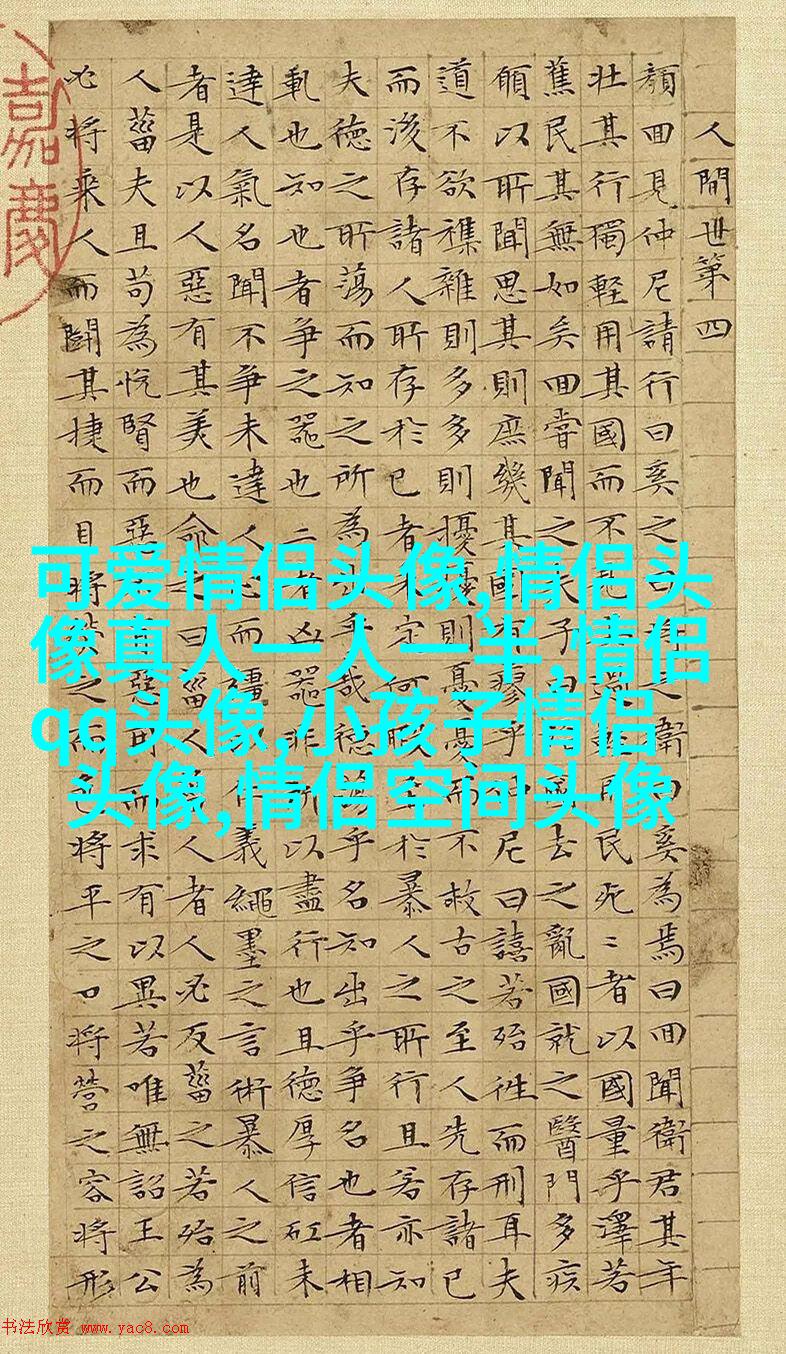 人間世第四
顔囬見仲尼請行曰奚之曰將之衛曰奚為焉曰囬聞衛君其年
壮其行獨輕用其國而不過輕用民死〻者以國量乎澤若
蕉民其無如矣囬嘗聞之夫子曰國去之亂國就之醫門多疾
願以所聞思其則庶幾其國有瘳乎仲尼曰譆若殆往而刑耳夫
道不欲襍雜則多多則擾擾則憂憂而不救古之至人先存諸已
而後存諸人所存於已者未定何暇至於暴人之所行且若亦知
夫德之所蕩而知之所為出乎哉德蕩乎名知出乎爭名也者相
軋也知也者爭之器也二者凶器非所以盡行也且德厚信矼未
達人氣名聞不爭未達人心而彊仁義繩墨之言術暴人之前
者是以人惡有其美也命之曰菑人人者人必反菑之若殆為
人菑夫且苟為悅賢而惡惡用而求有以異若唯無詔王公
必將乘人而鬭其捷而目將熒之而色將平之口將營之容將形
嘉慶
可爱情侣头像,情侣头
像真人一人一半,情侣
qq头像,小孩子情侣
头像,情侣空间头像
书法欣赏 www.yac8.com